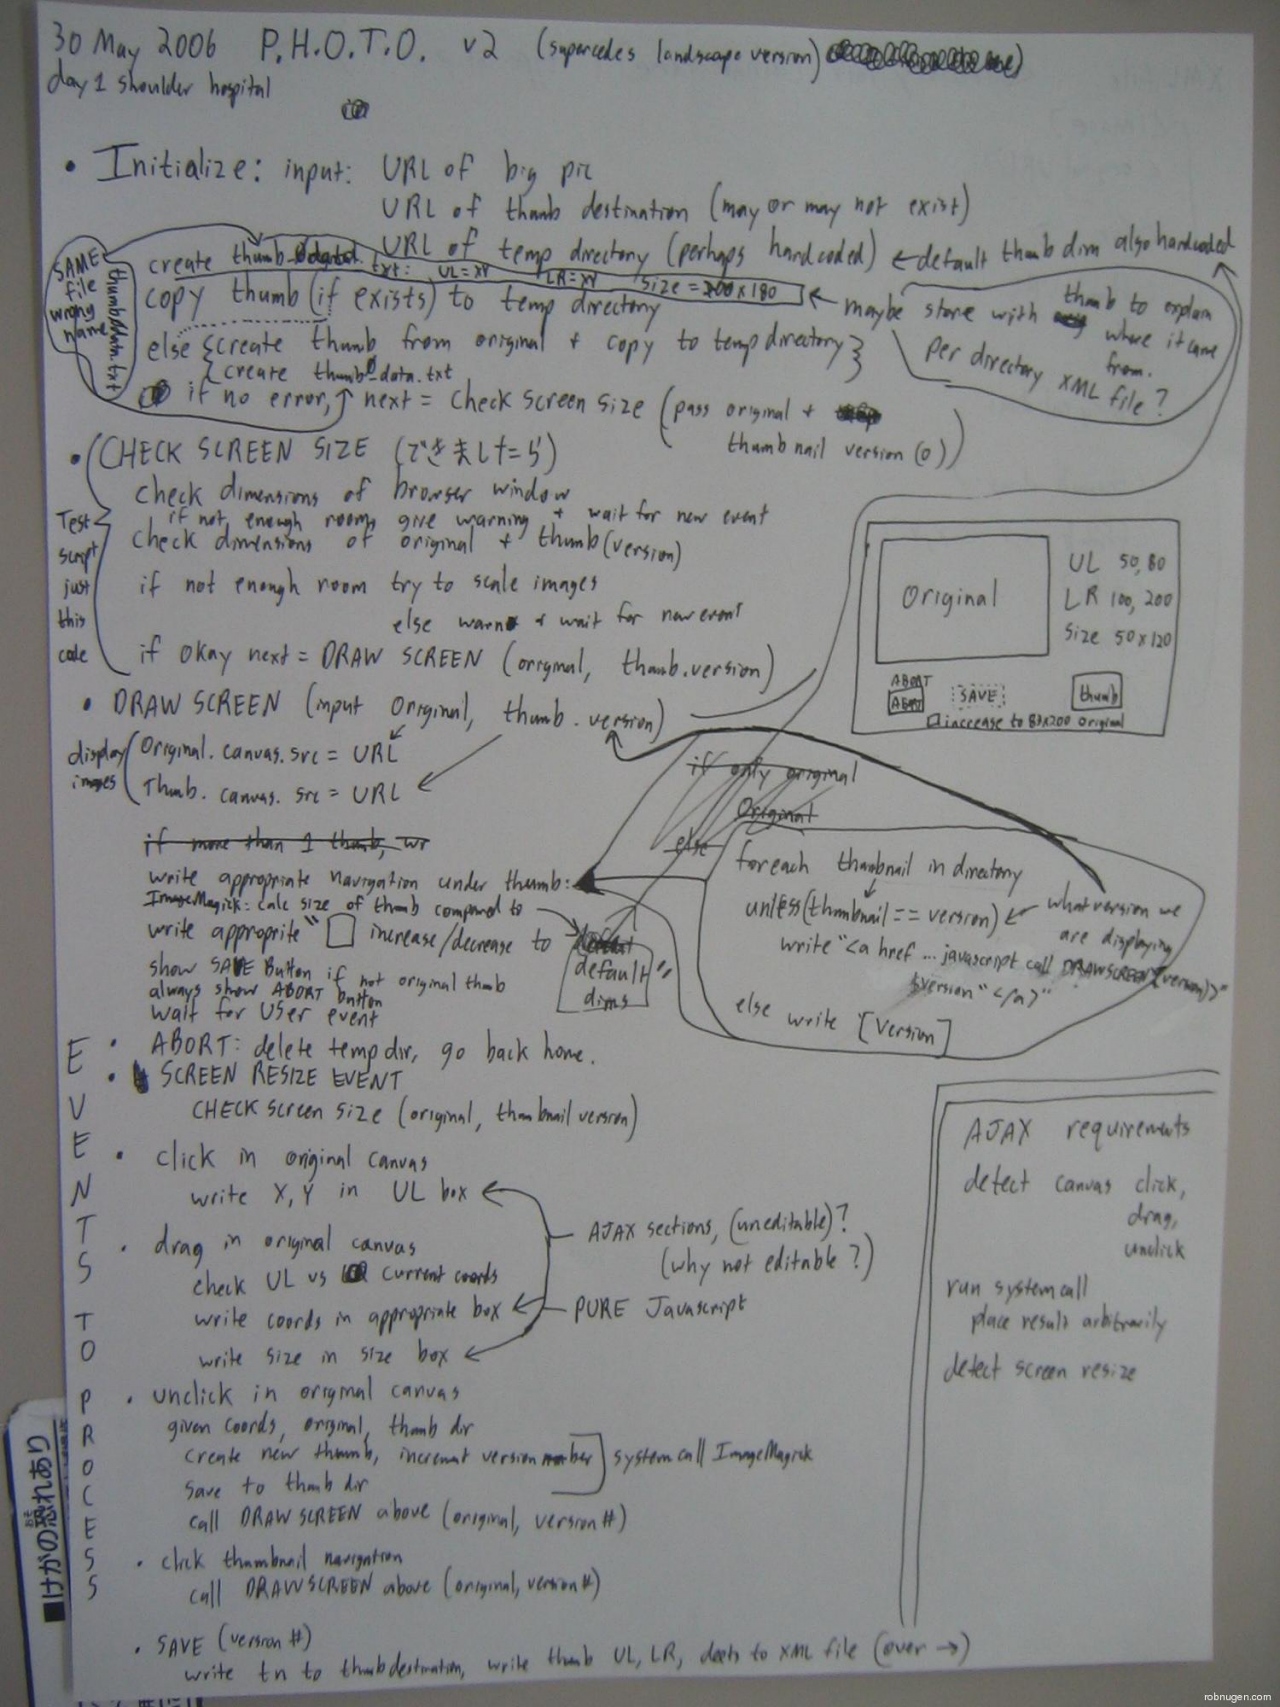 30 May 2006 P.H.O.T.O. v2 (supercedes landscape version)
day 1 shoulder hospital
• Initialize: input: URL of big pic
URL of thumb destination (may or may not exist)
URL of temp directory (perhaps hardcoded) ← default thumb dim also hardcoded
create thumb_0data.txt: UL=XY LR=XY Size=200x180
SAME file wrong name
thumbdata.txt
copy thumb (if exists) to temp directory
← maybe store with thumb to explain where it came from.
per directory XML file?
else {create thumb from original + copy to temp directory}
{create thumb0_data.txt
if no error, next = check screen size (pass original +
thumbnail version (0))
• CHECK SCREEN SIZE (できましたら)
Test script just this code
check dimensions of browser window
if not enough room, give warning + wait for new event
check dimensions of original + thumb (version)
if not enough room try to scale images
else warn + wait for new event
if okay next = DRAW SCREEN (original, thumb.version)
Original
UL 50,80
LR 100,200
Size 50x120
ABORT
ABORT
SAVE
thumb
□ increase to 83x200 original
• DRAW SCREEN (input original, thumb.version)
display images
Original.canvas.src = URL
Thumb.canvas.src = URL
if only original
Original
else
if more than 1 thumb, wr
write appropriate navigation under thumb:
ImageMagick: calc size of thumb compared to
write approprite "□ increase/decrease to
default dims"
show SAVE Button if not original thumb
always show ABORT button
wait for USer event
foreach thumbnail in directory
unless(thumbnail == version) ← what version we are displaying
write "<a href ... javascript call DRAWSCREEN(version)>"
$version"</a>"
else write [version]
EVENTS TO PROCESS
• ABORT: delete tempdir, go back home.
• SCREEN RESIZE EVENT
CHECK screen size (original, thumbnail version)
• click in original canvas
write X,Y in UL box
• drag in original canvas
check UL vs current coords
write coords in appropriate box
write size in size box
AJAX sections, (uneditable)?
(why not editable?)
PURE Javascript
• unclick in original canvas
given coords, original, thumb dir
create new thumb, increment version number
save to thumb dir
system call ImageMagick
call DRAW SCREEN above (original, version #)
• click thumbnail navigation
call DRAWSCREEN above (original, version #)
• SAVE (version #)
write tn to thumbdestination, write thumb UL, LR, deets to XML file (over →)
AJAX requirements
detect canvas click,
drag,
unclick
run system call
place result arbitrarily
detect screen resize
■けがの恐れあり
おそ
robnugen.com